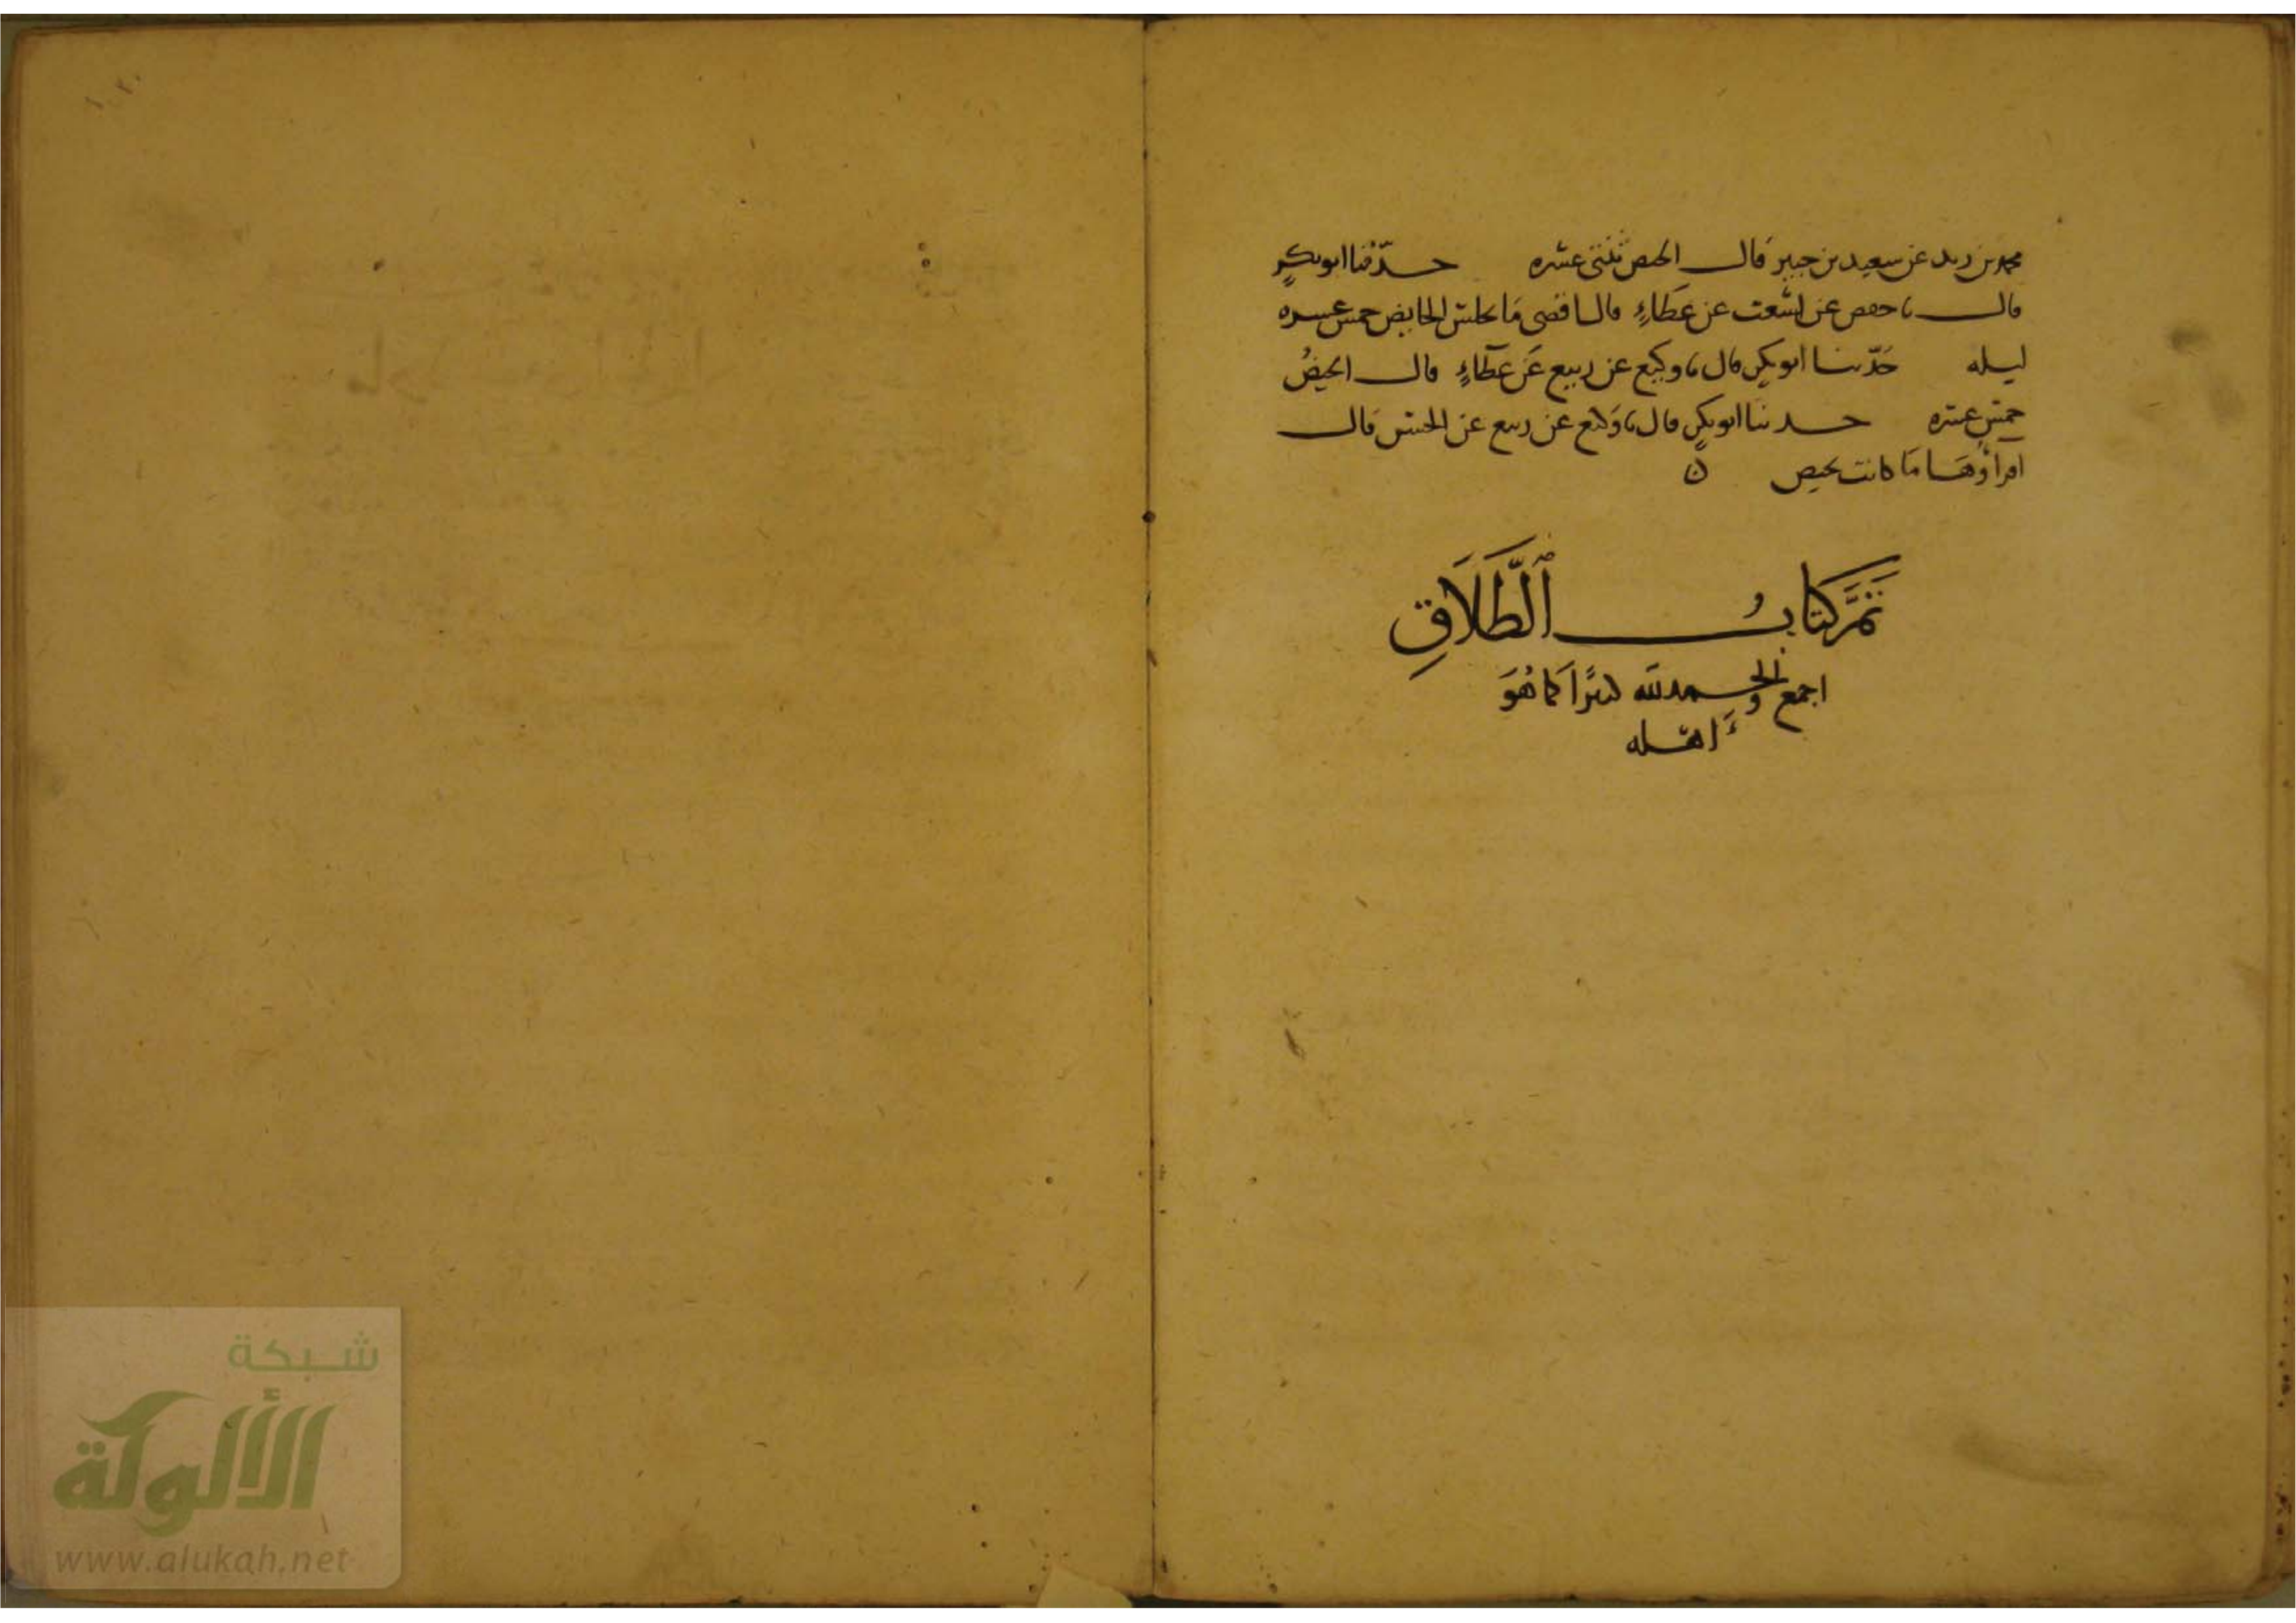 محمد بن زيد عن سعيد بن جبير قال الحيض ثنتى عشره حدّثنا ابو بكرٍ
قال نا حفص عن اشعث عن عطاءٍ قال اقصى مَا تجلس الحايض خمس عشره
ليله حَدّثنا ابو بكرٍ قال نا وكيع عن ربيع عَن عطاءٍ قال الحيضُ
خمس عشره حدثنا ابو بكرٍ قال نا وَكيع عن ربيع عن الحسن قال
اقراؤهَا مَا كانت تحيض ن
تَمَّ كتابُ الطَّلَاقِ
اجمع والحمد لله كثيرًا كما هُوَ
اهله
شبكة
الألوكة
www.alukah.net